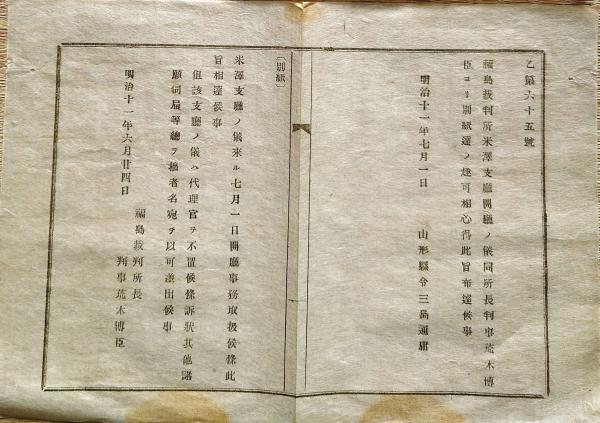 乙第六十五號
福島裁判所米澤支廳開廳ノ儀同所長判事荒木博
臣ヨリ別紙達ノ趣可相心得此旨布達候事
明治十一年七月一日
山形縣令三島通庸
〔別紙〕
米澤支廳ノ儀來ル七月一日開廳事務取扱候條此
旨相達候事
但該支廳ノ儀ハ代理官ヲ不置候條訴狀其他諸
願伺屆等總テ拙者名宛ヲ以可差出候事
明治十一年六月廿四日
福島裁判所長
判事荒木博臣